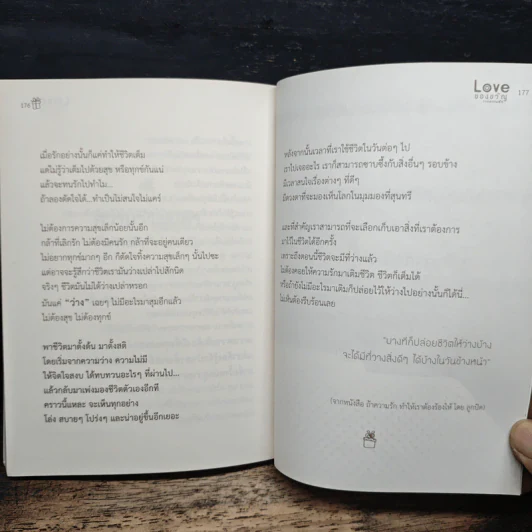 176
เมื่อรักอย่างนั้นก็แค่ทำให้ชีวิตเต็ม
แต่ไม่รู้ว่าเต็มไปด้วยสุข หรือทุกข์กันแน่
แล้วจะทนรักไปทำไม...
ถ้าลองตัดใจได้...ทำเป็นไม่สนใจไม่แคร์
ไม่ต้องการความสุขเล็กน้อยนั้นอีก
กล้าที่เลิกรัก ไม่ต้องมีคนรัก กล้าที่จะอยู่คนเดียว
ไม่อยากทุกข์มากๆ อีก ก็ตัดใจทิ้งความสุขเล็กๆ นั้นไปซะ
แต่อาจจะรู้สึกว่าชีวิตเรามันว่างเปล่าไปสักนิด
จริงๆ ชีวิตมันไม่ได้ว่างเปล่าหรอก
มันแค่ "ว่าง" เฉยๆ ไม่มีอะไรมาสุมอีกแล้ว
ไม่ต้องสุข ไม่ต้องทุกข์
พาชีวิตมาตั้งต้น มาตั้งสติ
โดยเริ่มจากความว่าง ความไม่มี
ให้จิตใจสงบ ได้ทบทวนอะไรๆ ที่ผ่านไป...
แล้วกลับมาเพ่งมองชีวิตตัวเองอีกที
คราวนี้แหละ จะเห็นทุกอย่าง
โล่ง สบายๆ โปร่งๆ และน่าอยู่ขึ้นอีกเยอะ
Love
ของขวัญ
177
หลังจากนั้นเวลาที่เราใช้ชีวิตในวันต่อๆ ไป
เราไปเจออะไร เราก็สามารถซาบซึ้งกับสิ่งอื่นๆ รอบข้าง
มีเวลาสนใจเรื่องต่างๆ ที่ดีๆ
มีดวงตาที่จะมองเห็นโลกในมุมมองที่สุนทรี
และที่สำคัญเราสามารถที่จะเลือกเก็บเอาสิ่งที่เราต้องการ
มาไว้ในชีวิตได้อีกครั้ง
เพราะถึงตอนนี้ชีวิตจะมีที่ว่างแล้ว
ไม่ต้องคอยให้ความรักมาเติมชีวิต ชีวิตก็เต็มได้
หรือถ้ายังไม่มีอะไรมาเติมก็ปล่อยไว้ให้ว่างไปอย่างนั้นก็ได้นี่...
ไม่เห็นต้องรีบร้อนเลย
"บางทีก็ปล่อยชีวิตให้ว่างบ้าง
จะได้มีที่วางสิ่งดีๆ ได้บ้างในวันข้างหน้า"
(จากหนังสือ ถ้าความรัก ทำให้เราต้องร้องไห้ โดย ลูกปัด)